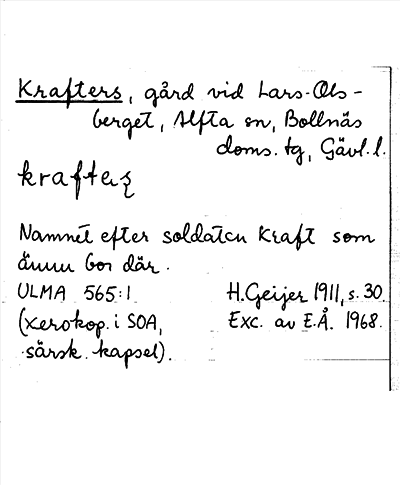 Krafters, gård vid Lars-Ols-
berget, Alfta sn, Bollnäs
doms. tg, Gävl. l.
Namnet efter soldaten Kraft som
ännu bor där.
ULMA 565:1 H. Geijer 1911, s. 30
(xerokop. i SOA, Exc. av E.Å. 1968.
särsk. kapsel).